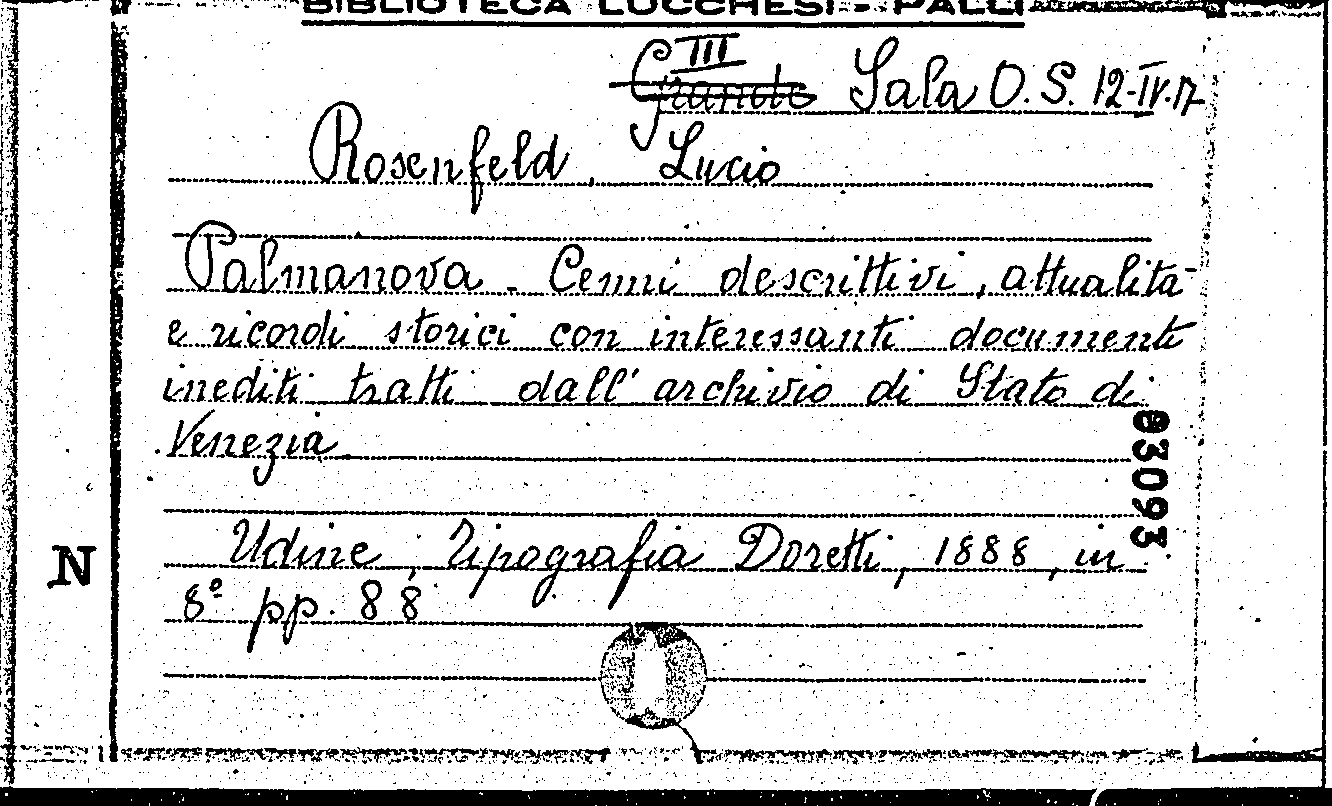 BIBLIOTECA LUCCHESI - PALLI
III
Grande Sala O. S. 12-IV.17
Rosenfeld, Lucio
Palmanova - Cenni descrittivi, attualità
e ricordi storici con interessanti documenti
inediti tratti dall'archivio di Stato di
Venezia
030093
Udine, Tipografia Doretti, 1888, in
8º pp. 88
N